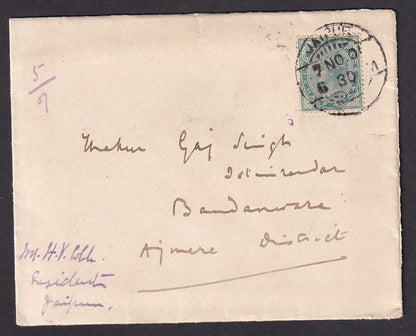 JAIPUR
7 NO 01
6 30
5/9
Thakur Gaj Singh
Istimrardar
Bandanwara
Ajmere District
H. V. Cobb.
Resident
Jaipur.